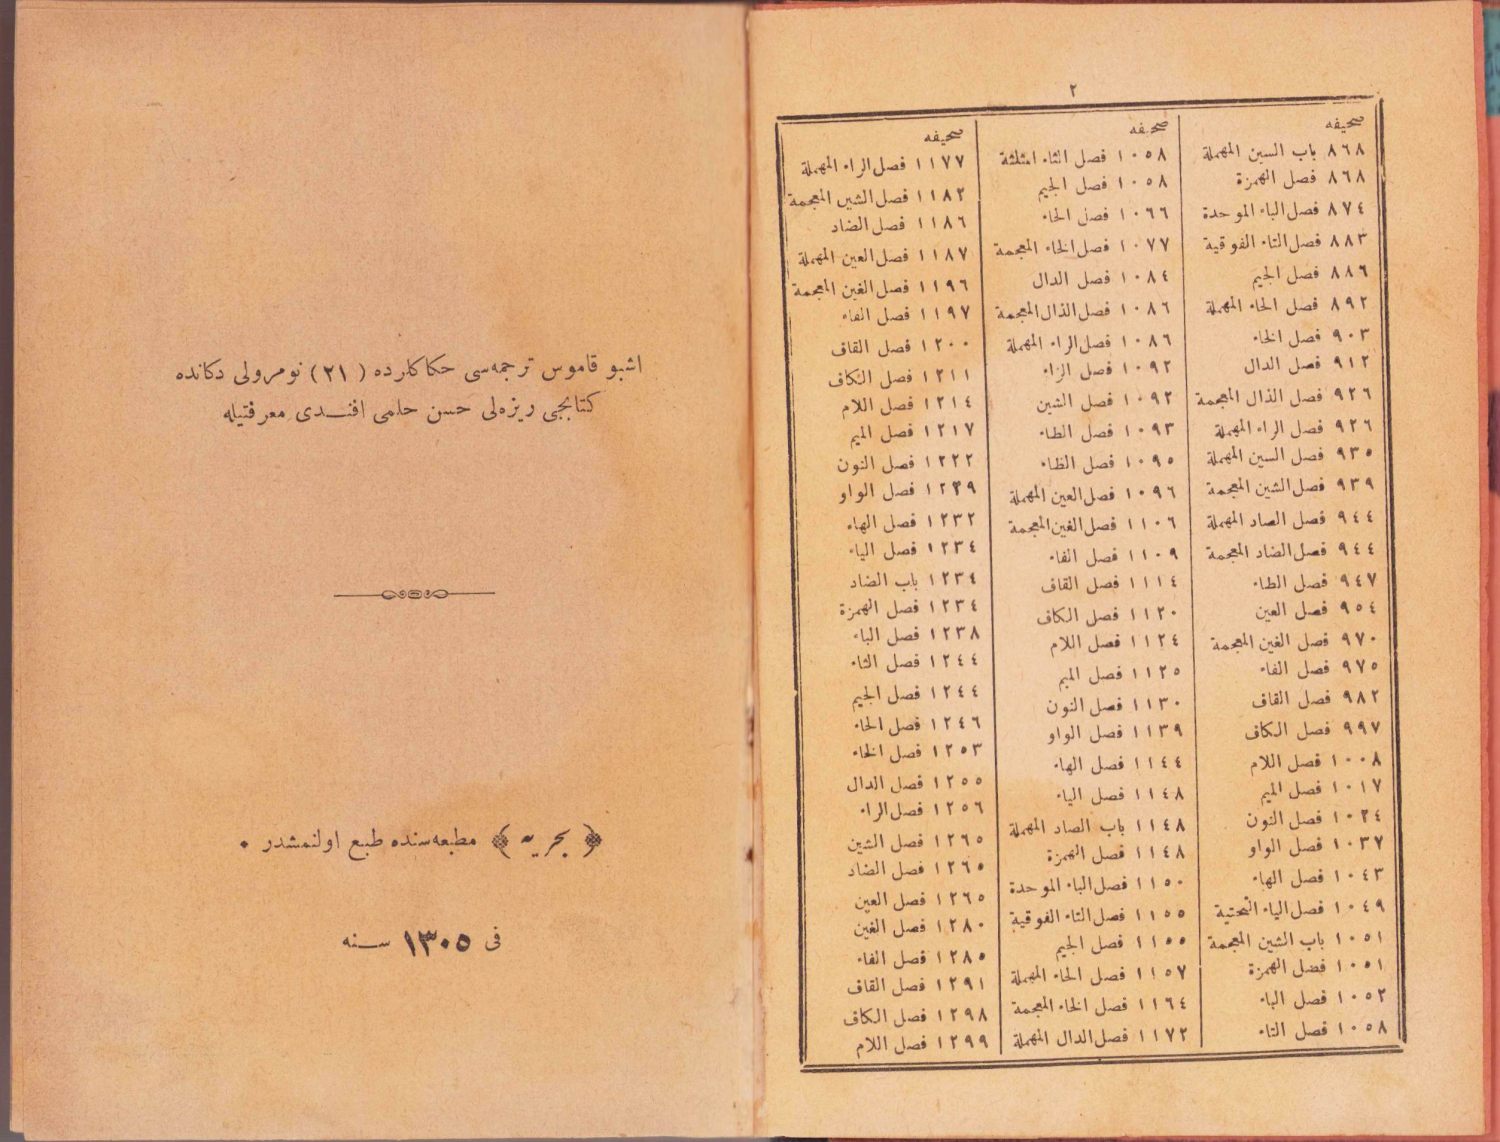 ٢
صحيفه
٨٦٨ باب السين المهملة
٨٦٨ فصل الهمزة
٨٧٤ فصل الباء الموحدة
٨٨٣ فصل التاء الفوقية
٨٨٦ فصل الجيم
٨٩٢ فصل الحاء المهملة
٩٠٣ فصل الخاء
٩١٢ فصل الدال
٩٢٦ فصل الذال المعجمة
٩٢٦ فصل الراء المهملة
٩٣٥ فصل السين المهملة
٩٣٩ فصل الشين المعجمة
٩٤٤ فصل الصاد المهملة
٩٤٤ فصل الضاد المعجمة
٩٤٧ فصل الطاء
٩٥٤ فصل العين
٩٧٠ فصل الغين المعجمة
٩٧٥ فصل الفاء
٩٨٢ فصل القاف
٩٩٧ فصل الكاف
١٠٠٨ فصل اللام
١٠١٧ فصل الميم
١٠٢٤ فصل النون
١٠٣٧ فصل الواو
١٠٤٣ فصل الهاء
١٠٤٩ فصل الياء التحتية
١٠٥١ باب الشين المعجمة
١٠٥١ فصل الهمزة
١٠٥٢ فصل الباء
١٠٥٨ فصل التاء
صحيفه
١٠٥٨ فصل الثاء المثلثة
١٠٥٨ فصل الجيم
١٠٦٦ فصل الحاء
١٠٧٧ فصل الخاء المعجمة
١٠٨٤ فصل الدال
١٠٨٦ فصل الذال المعجمة
١٠٨٦ فصل الراء المهملة
١٠٩٢ فصل الزاء
١٠٩٢ فصل الشين
١٠٩٣ فصل الطاء
١٠٩٥ فصل الظاء
١٠٩٦ فصل العين المهملة
١١٠٦ فصل الغين المعجمة
١١٠٩ فصل الفاء
١١١٤ فصل القاف
١١٢٠ فصل الكاف
١١٢٤ فصل اللام
١١٢٥ فصل الميم
١١٣٠ فصل النون
١١٣٩ فصل الواو
١١٤٤ فصل الهاء
١١٤٨ فصل الياء
١١٤٨ باب الصاد المهملة
١١٤٨ فصل الهمزة
١١٥٠ فصل الباء الموحدة
١١٥٥ فصل التاء الفوقية
١١٥٥ فصل الجيم
١١٥٧ فصل الحاء المهملة
١١٦٤ فصل الخاء المعجمة
١١٧٢ فصل الدال المهملة
صحيفه
١١٧٧ فصل الراء المهملة
١١٨٢ فصل الشين المعجمة
١١٨٦ فصل الضاد
١١٨٧ فصل العين المهملة
١١٩٦ فصل الغين المعجمة
١١٩٧ فصل الفاء
١٢٠٠ فصل القاف
١٢١١ فصل الكاف
١٢١٤ فصل اللام
١٢١٧ فصل الميم
١٢٢٢ فصل النون
١٢٢٩ فصل الواو
١٢٣٢ فصل الهاء
١٢٣٤ فصل الياء
١٢٣٤ باب الضاد
١٢٣٤ فصل الهمزة
١٢٣٨ فصل الباء
١٢٤٤ فصل التاء
١٢٤٤ فصل الجيم
١٢٤٦ فصل الحاء
١٢٥٣ فصل الخاء
١٢٥٥ فصل الدال
١٢٥٦ فصل الراء
١٢٦٥ فصل الشين
١٢٦٥ فصل الضاد
١٢٦٥ فصل العين
١٢٨٠ فصل الغين
١٢٨٥ فصل الفاء
١٢٩١ فصل القاف
١٢٩٨ فصل الكاف
١٢٩٩ فصل اللام
اشبو قاموس ترجمه‌سى حكاكلرده (٢١) نومرولى دكانده
كتابجى ريزه‌لى حسن حلمى افندى معرفتيله
﴿ بحريه ﴾ مطبعه‌سنده طبع اولنمشدر .
فى ١٣٠٥ سنه